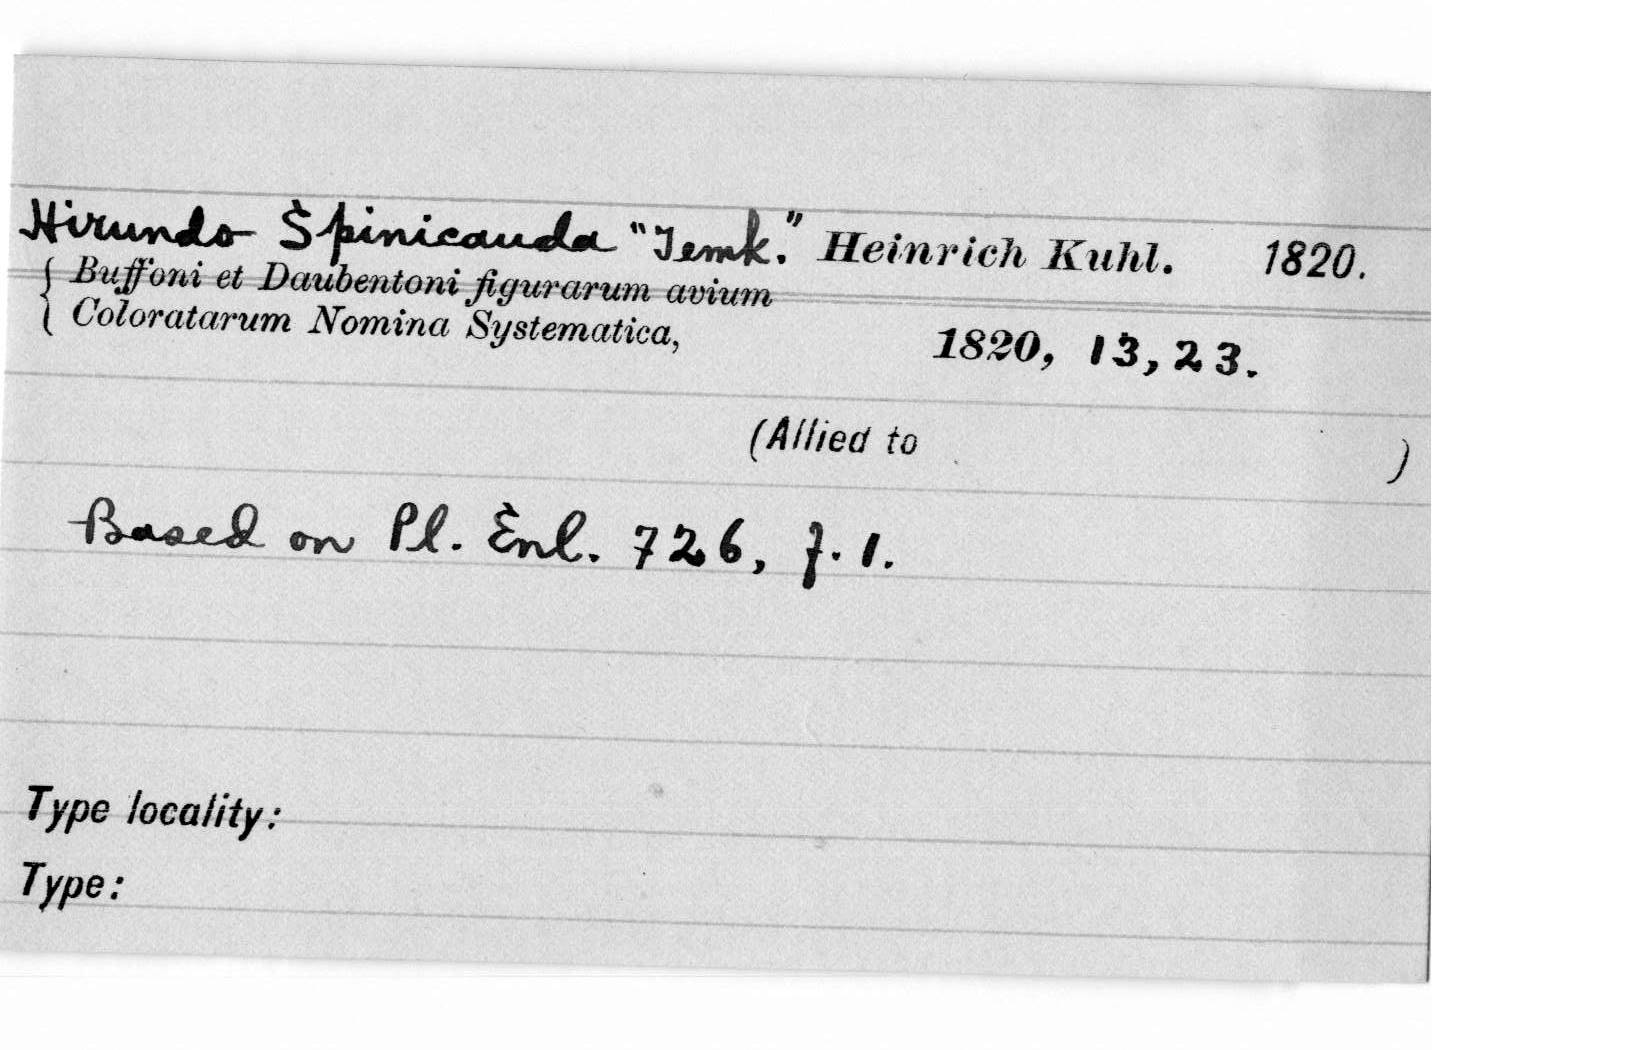 Hirundo Spinicauda "Temk." Heinrich Kuhl. 1820.
Buffoni et Daubentoni figurarum avium
Coloratarum Nomina Systematica, 1820, 13, 23.
(Allied to )
Based on Pl. Enl. 726, f. 1.
Type locality:
Type: